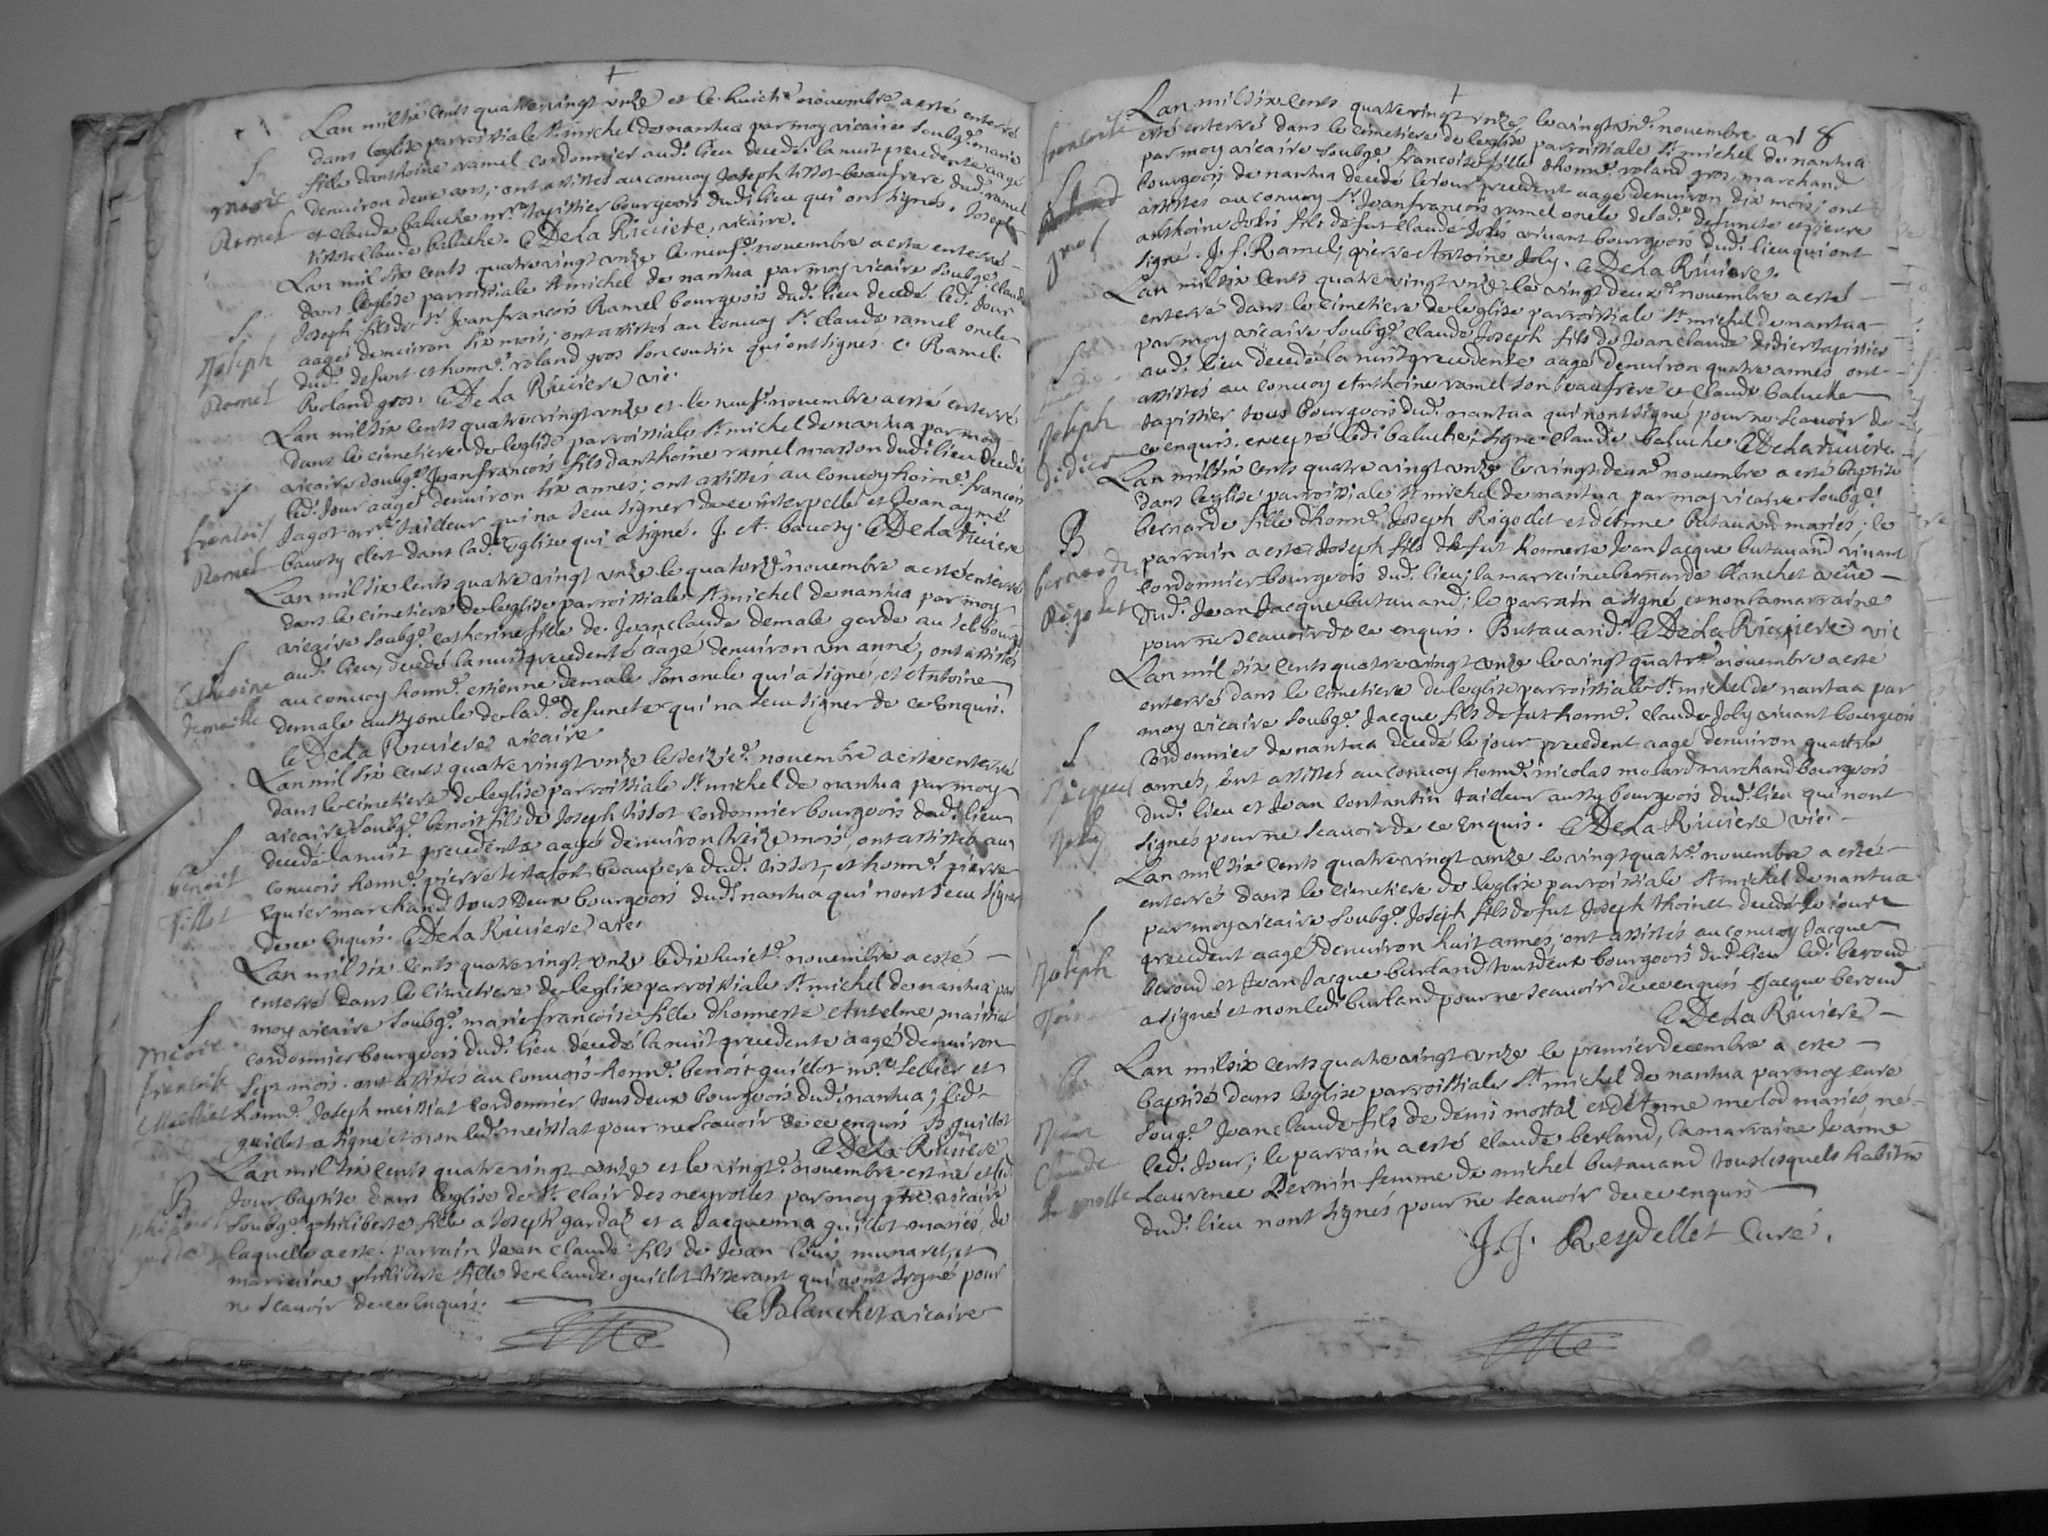 Lan mil six cents quatre vingt unze et le huictᵉ novembre a esté enterré
dans leglise parroissiale St michel de nantua par moy vicaire soubgⁿᵉ marie
fille danthoine ramel cordonnier audᵗ lieu decedé la nuit precedente aagé
denviron deux ans; ont assistes au convoy Joseph tissot beaufrere dudᵗ ramel
et claude baluche mʳᵉ tapissier bourgeois dudᵗ lieu qui ont signes. Joseph
tissot claude baluche. C DeLa Riviere, vicaire.
S
marie
Ramel
Lan mil six cents quatre vingt unze le neufᵉ novembre a este enterré
dans leglise parroissiale St michel de nantua par moy vicaire soubgⁿᵉ claude
Joseph fils de Sʳ Jean francois Ramel bourgeois dudᵗ lieu decedé ledᵗ Jour
aagé denviron six mois; ont assistés au convoy Sʳ claude ramel oncle
dudᵗ defunt et honnᵉ roland gros son cousin qui ont signes. C. Ramel.
Roland gros. C DeLa Riviere vic.
S
Joseph
Ramel
Lan mil six cents quatre vingt unze et le neufᵉ novembre a esté enterré
dans le cimetiere de leglise parroissiale St michel de nantua par moy
vicaire soubgⁿᵉ Jean francois fils danthoine ramel masson dudᵗ lieu decedé
ledᵗ Jour aagé denviron six annes; ont assistés au convoy honnᵉ francois
Jagot mʳᵉ tailleur qui na sceu signer de ce interpellé et Jean aymé
baussy clerc dans ladᵗᵉ Eglise qui a signé. J. A. baussy. C DeLa Riviere
S
francois
Ramel
Lan mil six cents quatre vingt unze le quatorzᵉ novembre a esté enterré
dans le cimetiere de leglise parroissiale St michel de nantua par moy
vicaire soubgⁿᵉ catherine fille de Jean claude demale garde au sel bourg
audᵗ lieu, decedé la nuit precedente aagé denviron un anné; ont assistes
au convoy honnᵉ estienne demale son oncle qui a signé, et Antoine
demale aussy oncle de ladᵗᵉ defuncte qui na sceu signer de ce Enquis.
C DeLa Riviere vicaire
S
Catherine
demalle
Lan mil six cents quatre vingt unze le seizieᵉ novembre a este enterré
dans le cimetiere de leglise parroissiale St michel de nantua par moy
vicaire soubgⁿᵉ benoit fils de Joseph tissot cordonnier bourgeois dudᵗ lieu
decedé la nuit precedente aagé denviron treize mois, ont assistés au
convois honnᵉ pierre beaupere dudᵗ tissot, et honnᵉ pierre
Equier marchand tous Deux bourgeois dudᵗ nantua qui nont sceu signer
de ce Enquis. C DeLa Riviere vic.
S
benoit
tissot
Lan mil six cents quatre vingt unze le dix huictᵉ novembre a esté
enterré dans le cimetiere de leglise parroissiale St michel de nantua par
moy vicaire soubgⁿᵉ marie francoise fille dhonneste Antelme maissiat
cordonnier bourgeois dudᵗ lieu decedé la nuit precedente aagé denviron
sept mois. ont assistés au convois honnᵉ benoit guillot mʳᵉ sellier et
honnᵉ Joseph meissiat cordonnier tous deux bourgeois dudᵗ nantua; ledᵗ
guillot a signé et non ledᵗ meissiat pour ne scavoir de ce enquis B guillot
C DeLa Riviere
S
marie
francoise
Meissiat
Lan mil six cents quatre vingt unze et le vingtᵉ novembre est né et led
Jour baptise dans leglise de St clair des neyrolles par moy pbre vicaire
soubgⁿᵉ philiberte fille a Joseph gardaz et a Jacquema guillot mariés de
laquelle a este parrain Jean claude fils de Jean louis munaret, et
marraine philiberte fille de claude guillot tisserant qui nont signé pour
ne scavoir de ce Enquis.
C Blanchet vicaire
B
18
Lan mil six cents quatre vingt unze le vingt unᵉ novembre a
esté enterré dans le cimetiere de leglise parroissiale St michel de nantua
par moy vicaire soubgⁿᵉ francoise fille dhonnᵉ roland gros marchand
bourgeois de nantua decedé le Jour precedent aagé denviron dix mois; ont
assistes au convoy Sʳ Jean francois ramel oncle de ladᵗᵉ defuncte et pierre
anthoine Jolis fils de fut claude Jolis vivant bourgeois dudᵗ lieu qui ont
signé. J. f. Ramel, pierre Antoine Joly. C DeLa Riviere.
francoise
S
gros
Lan mil six cents quatre vingt unze le vingt deuxᵉ novembre a esté
enterré dans le cimetiere de leglise parroissiale St michel de nantua
par moy vicaire soubgⁿᵉ claude Joseph fils de Jean claude didier tapissier
audᵗ lieu decedé la nuit precedente aagé denviron quatre annés ont
assistés au convoy Anthoine ramel son beaufrere et Claude baluche
tapissier tous bourgeois dudᵗ nantua qui nont signe pour ne scavoir de
ce enquis. excepté ledᵗ baluche signe claude baluche C DeLa Riviere.
S
Joseph
didier
Lan mil six cents quatre vingt unze le vingt deuxᵉ novembre a esté baptisé
dans leglise parroissiale St michel de nantua par moy vicaire soubgⁿᵉ
bernarde fille dhonnᵉ Joseph Rigodet et dAnne butavand mariés; le
parrain a este Joseph fils de fut honneste Jean Jacque butavand vivant
cordonnier bourgeois dudᵗ lieu; la marraine bernarde blanchet veuve
dudᵗ Jean Jacque butavand; le parrain a signé et non la marraine
pour ne scavoir de ce enquis. Butavand. C DeLa Riviere vic
B
bernarde
Rigodet
Lan mil six cents quatre vingt unze le vingt quatrᵉ novembre a este
enterré dans le cimetiere de leglise parroissiale St michel de nantua par
moy vicaire soubgⁿᵉ Jacque fils de fut honnᵉ claude Joly vivant bourgeois
cordonnier de nantua decedé le jour precedent aagé denviron quattre
annés, ont assistés au convoy honnᵉ nicolas molard marchand bourgeois
dudᵗ lieu et Jean contantin tailleur aussy bourgeois dudᵗ lieu qui nont
signés pour ne scavoir de ce Enquis. C DeLa Riviere vic.
S
Jacque
Joly
Lan mil six cents quatre vingt unze le vingt quatrᵉ novembre a esté
enterré dans le cimetiere de leglise parroissiale St michel de nantua
par moy vicaire soubgⁿᵉ Joseph fils de fut Joseph thoinet decedé le iour
precedent aagé denviron huit annés, ont assistés au convoy Jacque
beroud et Jean Jacque burland tous deux bourgeois dudᵗ lieu ledᵗ beroud
a signés et non ledᵗ burland pour ne scavoir de ce enquis Jacque beroud
C DeLa Riviere
S
Joseph
Lan mil six cents quatre vingt unze le premier decembre a este
baptisé dans leglise parroissiale St michel de nantua par moy curé
sougⁿᵉ Jean claude fils de denis mostaz et dAnne melod mariés né
ledᵗ Jour; le parrain a esté claude berland, la marraine Jeanne
Laurence Dernin femme de michel butavand tous lesquels habitᵗˢ
dudᵗ lieu nont signés pour ne scavoir de ce enquis
J. J. Reydellet Curé.
Jean
Claude